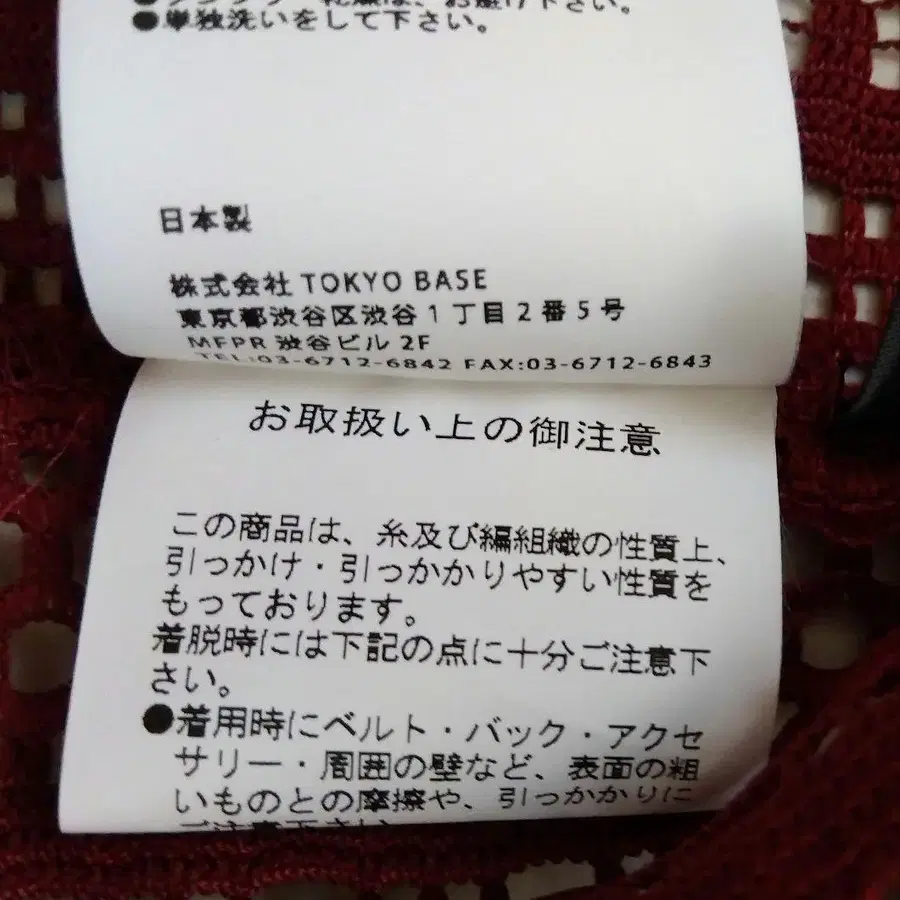 ●タンブラー乾燥は、お避け下さい。
●単独洗いをして下さい。
日本製
株式会社 TOKYO BASE
東京都渋谷区渋谷1丁目2番5号
MFPR 渋谷ビル 2F
TEL:03-6712-6842 FAX:03-6712-6843
お取扱い上の御注意
この商品は、糸及び編組織の性質上、
引っかけ・引っかかりやすい性質を
もっております。
着脱時には下記の点に十分ご注意下
さい。
●着用時にベルト・バック・アクセ
サリー・周囲の壁など、表面の粗
いものとの摩擦や、引っかかりに
ご注意下さい。